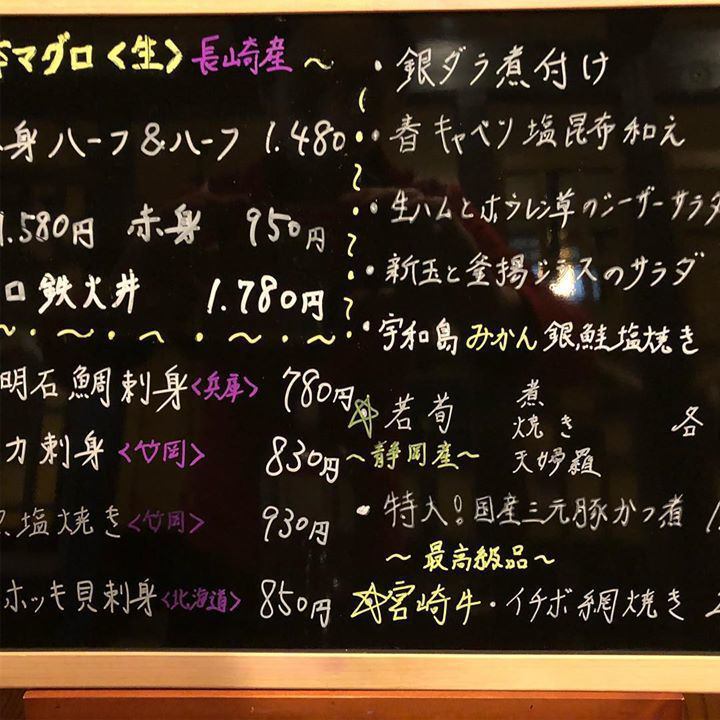 マグロ〈生〉長崎産～
身ハーフ&ハーフ 1.480
1.580円 赤身 950円
ロ鉄火丼 1.780円
明石鯛刺身〈兵庫〉 780円
カ刺身〈竹岡〉 830円
塩焼き〈竹岡〉 930円
ホッキ貝刺身〈北海道〉 850円
・銀ダラ煮付け
・春キャベツ塩昆布和え
・生ハムとホウレン草のシーザーサラダ
・新玉と釜揚シラスのサラダ
・宇和島みかん銀鮭塩焼き
☆若筍 煮 焼き 天婦羅 各
～静岡産～
・特大!国産三元豚かつ煮
～最高級品～
☆宮崎牛・イチボ網焼き